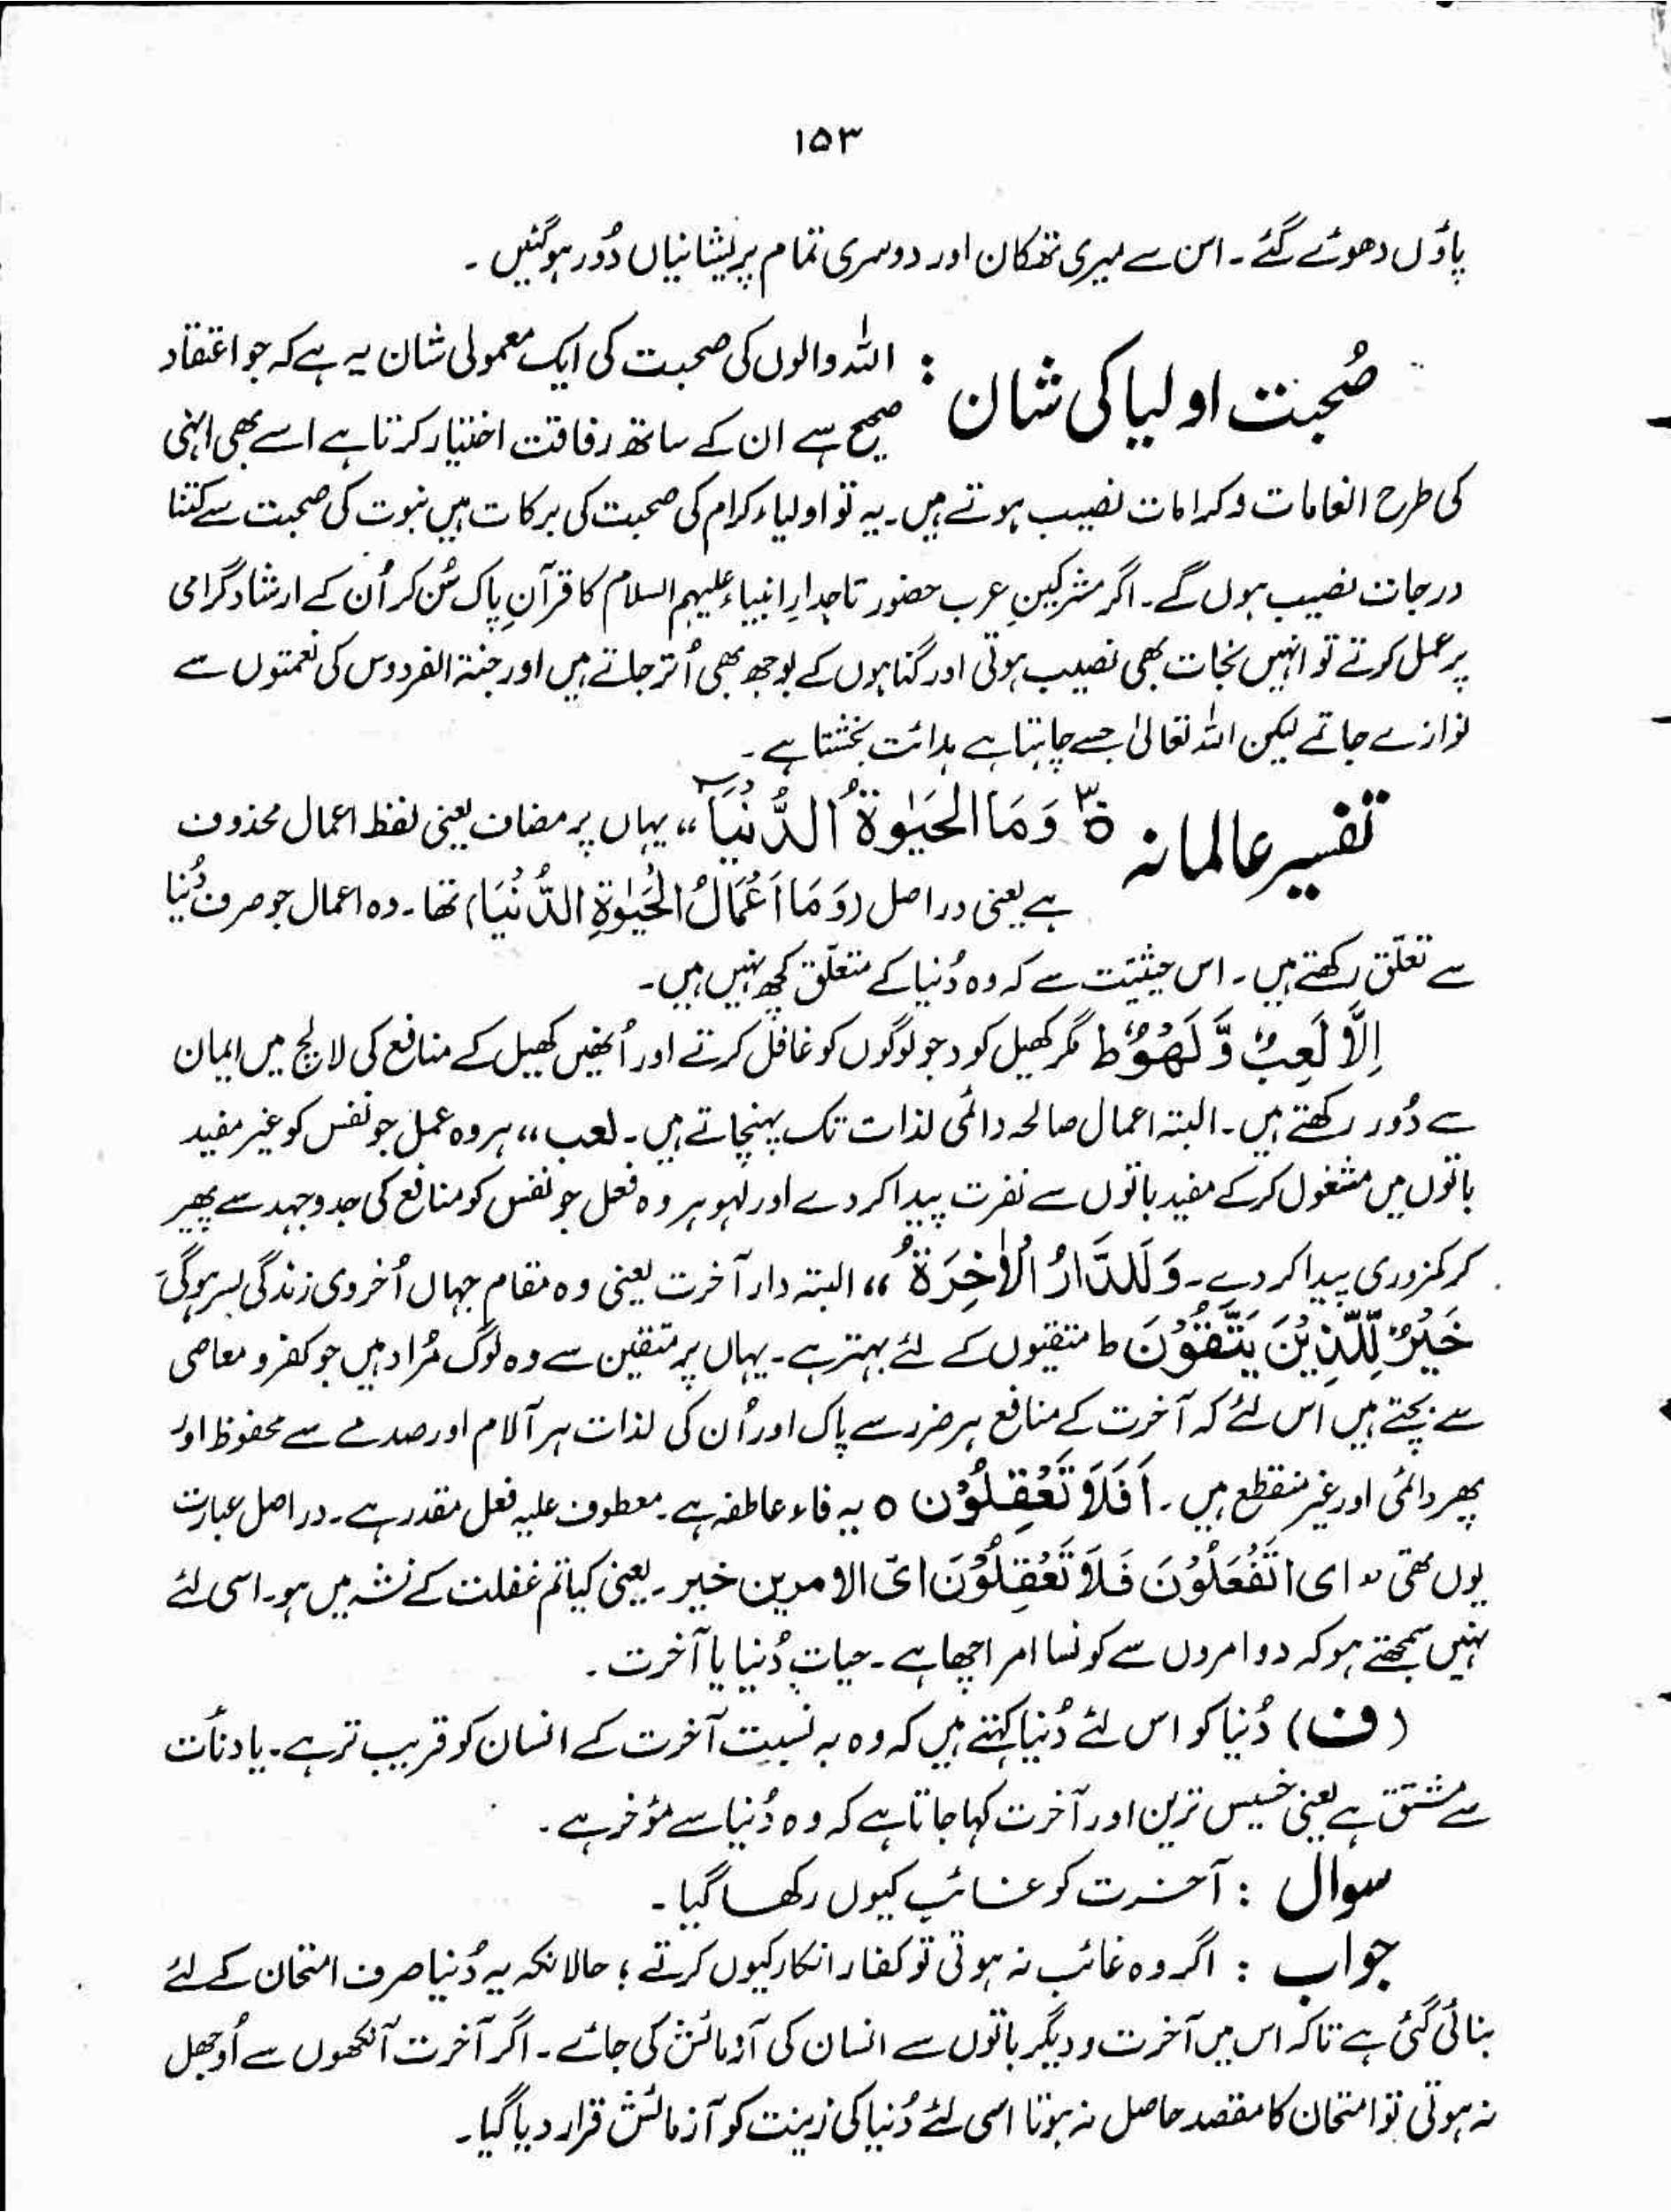 ۱۵۳
پاؤں دھوئے گئے۔ اس سے میری تھکان اور دوسری تمام پریشانیاں دُور ہوگئیں۔
صُحبت اولیا کی شان : اللہ والوں کی صحبت کی ایک معمولی شان یہ ہے کہ جو اعتقاد
صحیح سے ان کے ساتھ رفاقت اختیار کرتا ہے اسے بھی انہی
کی طرح انعامات و کرامات نصیب ہوتے ہیں۔ یہ تو اولیاء کرام کی صحبت کی برکات ہیں نبوت کی صحبت سے کتنا
درجات نصیب ہوں گے۔ اگر مشرکینِ عرب حضور تاجدارِ انبیاء علیہم السلام کا قرآنِ پاک سُن کر اُن کے ارشاد گرامی
پر عمل کرتے تو انہیں نجات بھی نصیب ہوتی اور گناہوں کے بوجھ بھی اُتر جاتے ہیں اور جنۃ الفردوس کی نعمتوں سے
نوازے جاتے لیکن اللہ تعالیٰ جسے چاہتا ہے ہدائت بخشتا ہے۔
تفسیر عالمانہ ۃ۳ وَمَا الْحَیٰوۃُ الدُّنْیَآ“ یہاں پر مضاف یعنی لفظ اعمال محذوف
ہے یعنی دراصل (وَمَا اَعْمَالُ الْحَیٰوۃِ الدُّنْیَا) تھا۔ وہ اعمال جو صرف دُنیا
سے تعلّق رکھتے ہیں۔ اس حیثیّت سے کہ وہ دُنیا کے متعلّق کچھ نہیں ہیں۔
اِلَّا لَعِبٌ وَّ لَھْوٌ ط مگر کھیل کود جو لوگوں کو غافل کرتے اور اُنھیں کھیل کے منافع کی لالچ میں ایمان
سے دُور رکھتے ہیں۔ البتہ اعمال صالحہ دائمی لذات تک پہنچاتے ہیں۔ لعب“ ہر وہ عمل جو نفس کو غیر مفید
باتوں میں مشغول کرکے مفید باتوں سے نفرت پیدا کردے اور لہو ہر وہ فعل جو نفس کو منافع کی جدوجہد سے پھیر
کر کمزوری پیدا کردے۔ وَلَلدَّارُ الْاٰخِرَۃُ “ البتہ دار آخرت یعنی وہ مقام جہاں اُخروی زندگی بسر ہوگی۔
خَیْرٌ لِّلَّذِیْنَ یَتَّقُوْنَ ط متقیوں کے لئے بہتر ہے۔ یہاں پر متقین سے وہ لوگ مُراد ہیں جو کفر و معاصی
سے بچتے ہیں اس لئے کہ آخرت کے منافع ہر ضرر سے پاک اور اُن کی لذات ہر آلام اور صدمے سے محفوظ اور
پھر دائمی اور غیر منقطع ہیں۔ اَفَلَا تَعْقِلُوْن ہ یہ فاء عاطفہ ہے۔ معطوف علیہ فعل مقدر ہے۔ دراصل عبارت
یوں تھی ” ای اتَفْعَلُوْنَ فَلَا تَعْقِلُوْنَ ایّ الامرین خیر۔ یعنی کیا تم غفلت کے نشہ میں ہو۔ اسی لئے
نہیں سمجھتے ہو کہ دو امروں سے کونسا امر اچھا ہے۔ حیاتِ دُنیا یا آخرت۔
(ف) دُنیا کو اس لئے دُنیا کہتے ہیں کہ وہ بہ نسبت آخرت کے انسان کو قریب تر ہے۔ یا دنأت
سے مشتق ہے یعنی خسیس ترین اور آخرت کہا جاتا ہے کہ وہ دُنیا سے مؤخر ہے۔
سوال : آخرت کو غائب کیوں رکھا گیا۔
جواب : اگر وہ غائب نہ ہوتی تو کفار انکار کیوں کرتے ؛ حالانکہ یہ دُنیا صرف امتحان کے لئے
بنائی گئی ہے تاکہ اس میں آخرت و دیگر باتوں سے انسان کی آزمائش کی جائے۔ اگر آخرت آنکھوں سے اُوجھل
نہ ہوتی تو امتحان کا مقصد حاصل نہ ہوتا اسی لئے دُنیا کی زینت کو آزمائش قرار دیا گیا۔